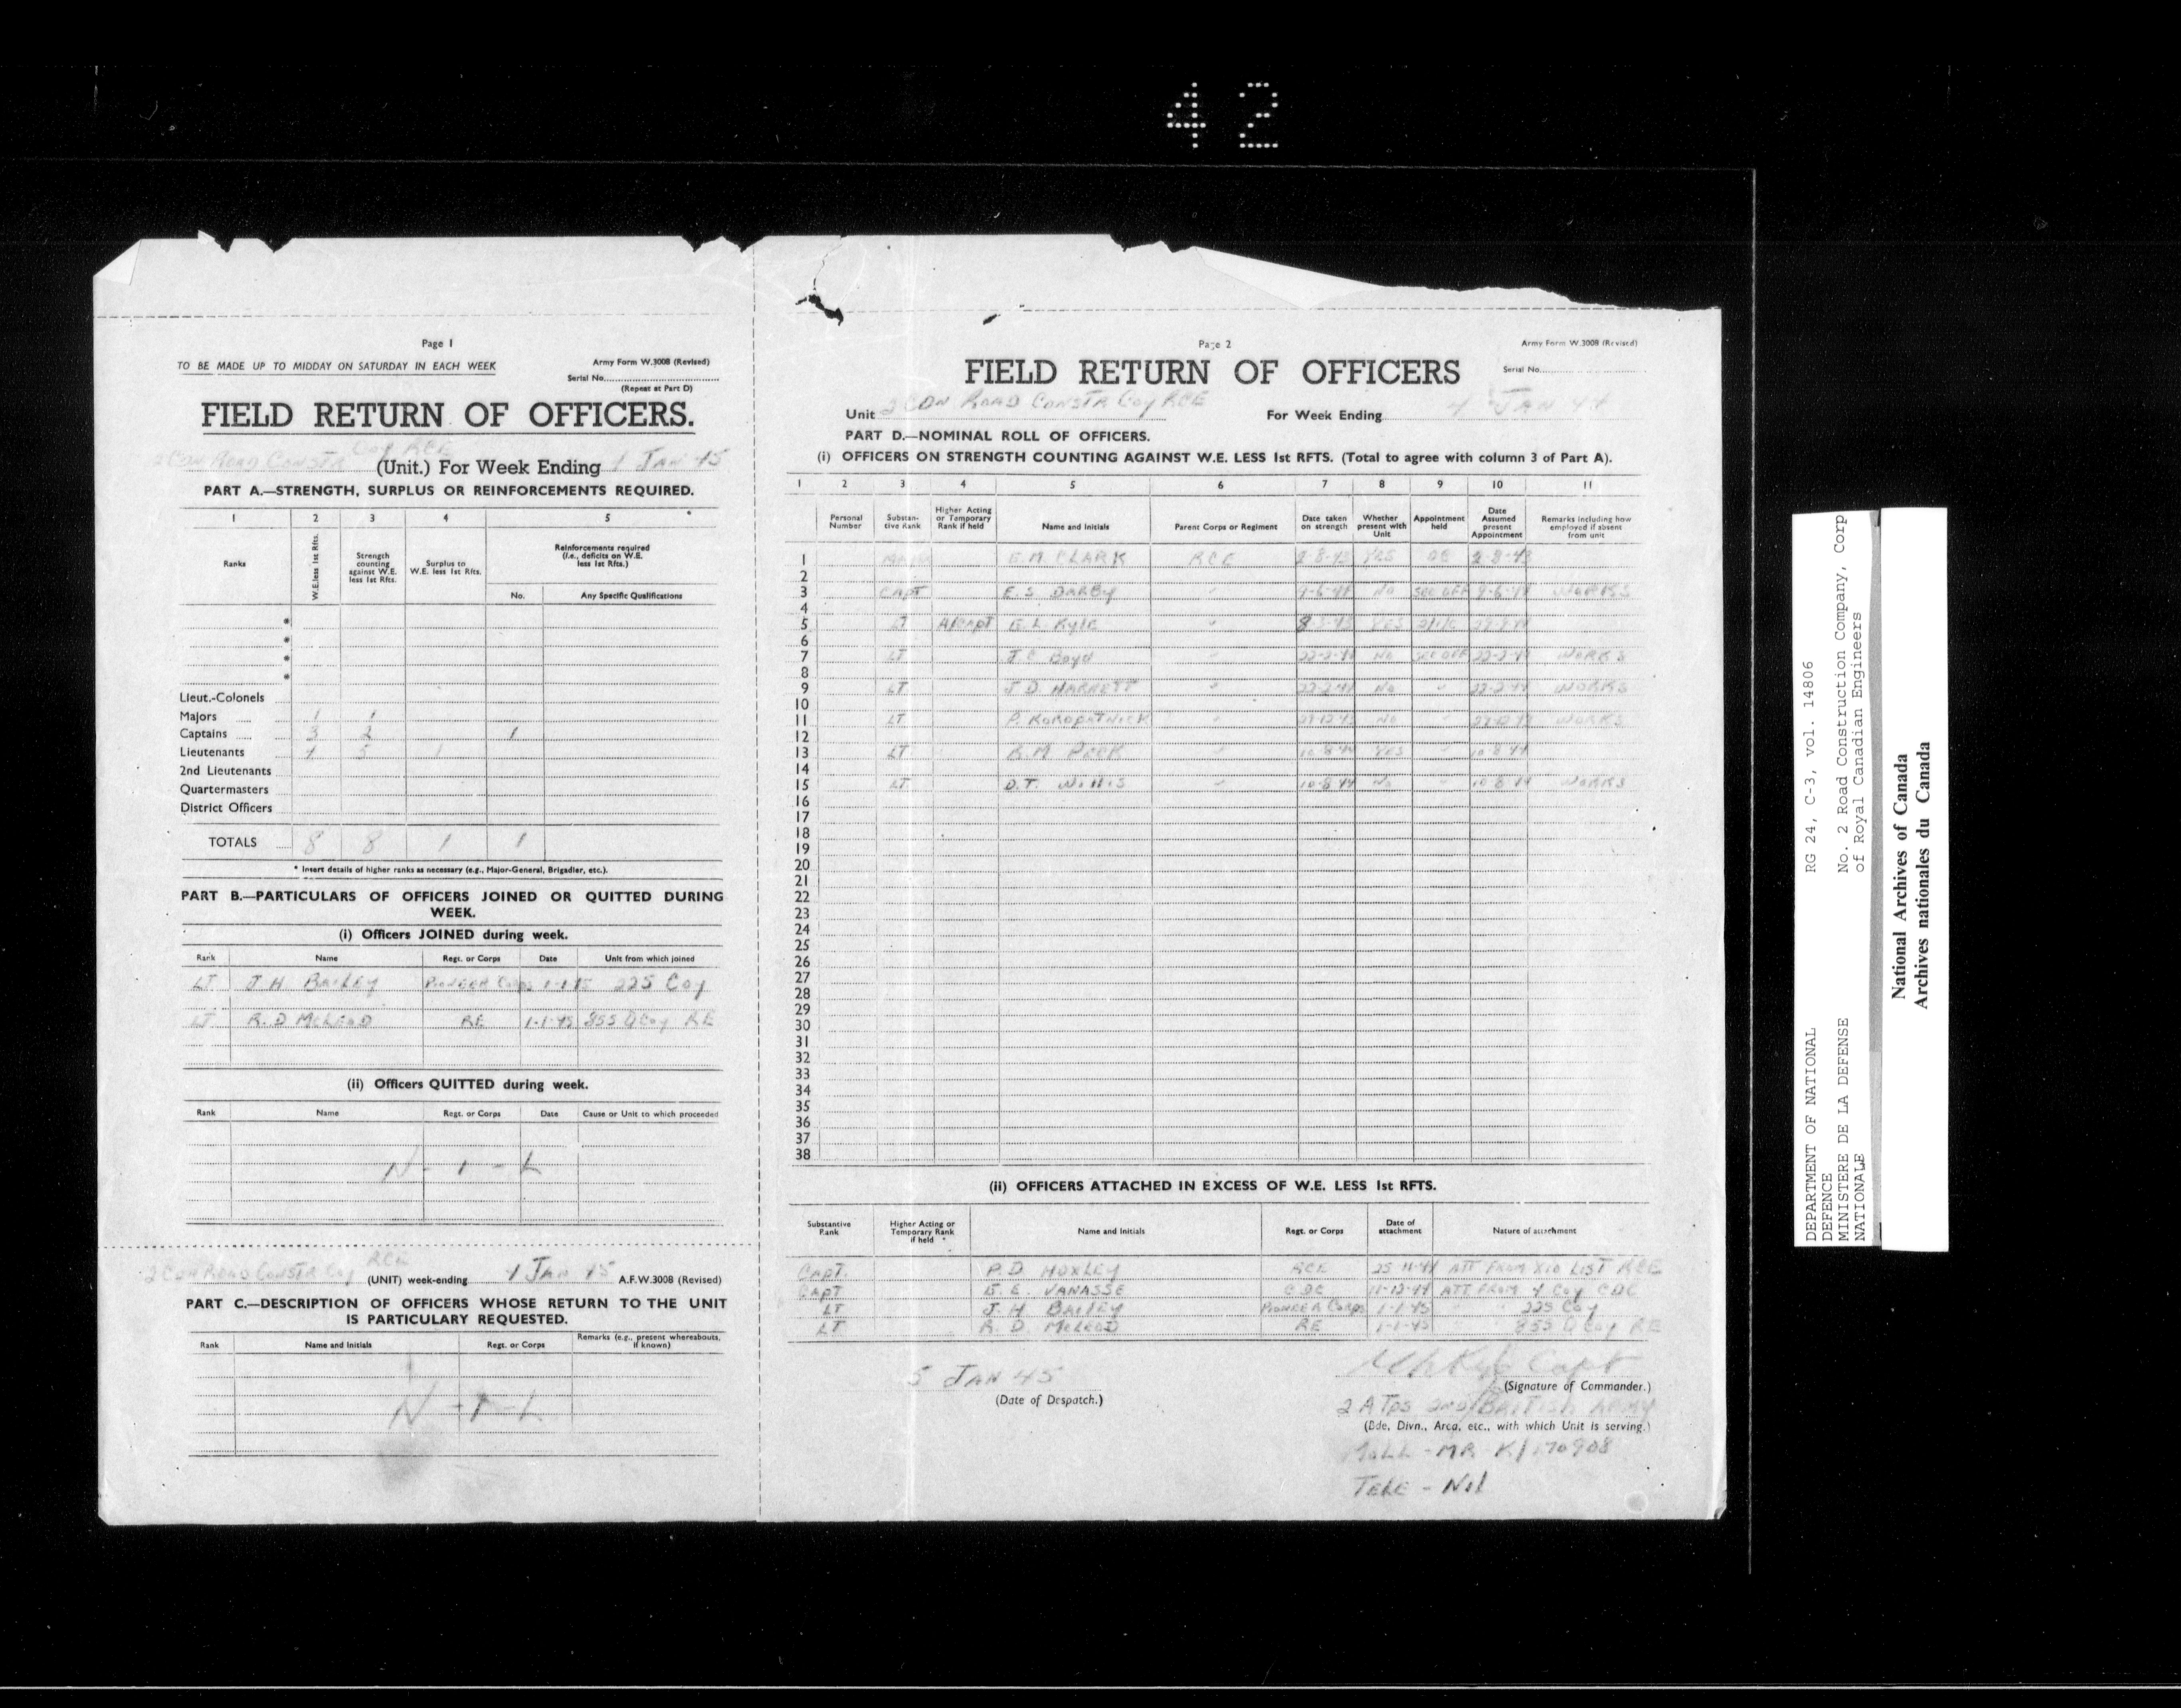 42
Page 1
TO BE MADE UP TO MIDDAY ON SATURDAY IN EACH WEEK
Army Form W.3008 (Revised)
Serial No.
(Repeat at Part D)
FIELD RETURN OF OFFICERS.
2 CDN ROAD CONSTR Coy RCE (Unit.) For Week Ending JAN 45
PART A.—STRENGTH, SURPLUS OR REINFORCEMENTS REQUIRED.
1 2 3 4 5
Ranks W.E. less 1st Rfts. Strength counting against W.E. less 1st Rfts. Surplus to W.E. less 1st Rfts. Reinforcements required (i.e., deficits on W.E. less 1st Rfts.)
No. Any Specific Qualifications
*
*
*
*
Lieut.-Colonels
Majors 1 1
Captains 3 2 1
Lieutenants 4 5 1
2nd Lieutenants
Quartermasters
District Officers
TOTALS 8 8 1 1
* Insert details of higher ranks as necessary (e.g., Major-General, Brigadier, etc.).
PART B.—PARTICULARS OF OFFICERS JOINED OR QUITTED DURING
WEEK.
(i) Officers JOINED during week.
Rank Name Regt. or Corps Date Unit from which joined
LT J H BAILEY PIONEER Corps 1-1-45 225 Coy
LT R. D McLEOD RE 1-1-45 855 Q Coy RE
(ii) Officers QUITTED during week.
Rank Name Regt. or Corps Date Cause or Unit to which proceeded
N - I - L
2 CDN ROAD CONSTR Coy RCE (UNIT) week-ending JAN 45 A.F.W.3008 (Revised)
PART C.—DESCRIPTION OF OFFICERS WHOSE RETURN TO THE UNIT
IS PARTICULARY REQUESTED.
Rank Name and Initials Regt. or Corps Remarks (e.g., present whereabouts, if known)
N - I - L
Page 2
Army Form W.3008 (Revised)
FIELD RETURN OF OFFICERS
Serial No.
Unit 2 CDN ROAD CONSTR Coy RCE For Week Ending JAN
PART D.—NOMINAL ROLL OF OFFICERS.
(i) OFFICERS ON STRENGTH COUNTING AGAINST W.E. LESS 1st RFTS. (Total to agree with column 3 of Part A).
1 2 3 4 5 6 7 8 9 10 11
Personal Number Substantive Rank Higher Acting or Temporary Rank if held Name and Initials Parent Corps or Regiment Date taken on strength Whether present with Unit Appointment held Date Assumed present Appointment Remarks including how employed if absent from unit
1 E.M. CLARK RCE 2-8-43 YES OC 2-8-43
2
3 CAPT E. S. DARBY " 9-6-44 No SEC OFF 9-6-44 WORKS
4
5 LT A/CAPT E. L. Kyle " YES
6
7 LT J C Boyd " 22-2-44 No SEC OFF 22-2-44 WORKS
8
9 LT J D HARNETT " 22-2-44 No " 22-2-44 WORKS
10
11 LT " No " WORKS
12
13 LT PECK " 10-8-44 YES " 10-8-44
14
15 LT D.T. Willis " 10-8-44 No " 10-8-44 WORKS
16
17
18
19
20
21
22
23
24
25
26
27
28
29
30
31
32
33
34
35
36
37
38
(ii) OFFICERS ATTACHED IN EXCESS OF W.E. LESS 1st RFTS.
Substantive Rank Higher Acting or Temporary Rank if held Name and Initials Regt. or Corps Date of attachment Nature of attachment
CAPT. P. D MOXLEY RCE 25-11-44 ATT FROM X10 LIST RCE
CAPT VANASSE CDC 11-12-44 ATT FROM 4 Coy CDC
LT J. H BAILEY PIONEER Corps 1-1-45 " " 225 Coy
LT R. D McLEOD RE 1-1-45 " " 855 Q Coy RE
5 JAN 45
(Date of Despatch.)
Capt
(Signature of Commander.)
2 A Tps 2nd BRITISH ARMY
(Bde, Divn., Area, etc., with which Unit is serving.)
MOLL - MR K/170908
TELE - Nil
DEPARTMENT OF NATIONAL
DEFENCE
MINISTERE DE LA DEFENSE
NATIONALE
RG 24, C-3, vol. 14806
No. 2 Road Construction Company, Corp
of Royal Canadian Engineers
National Archives of Canada
Archives nationales du Canada